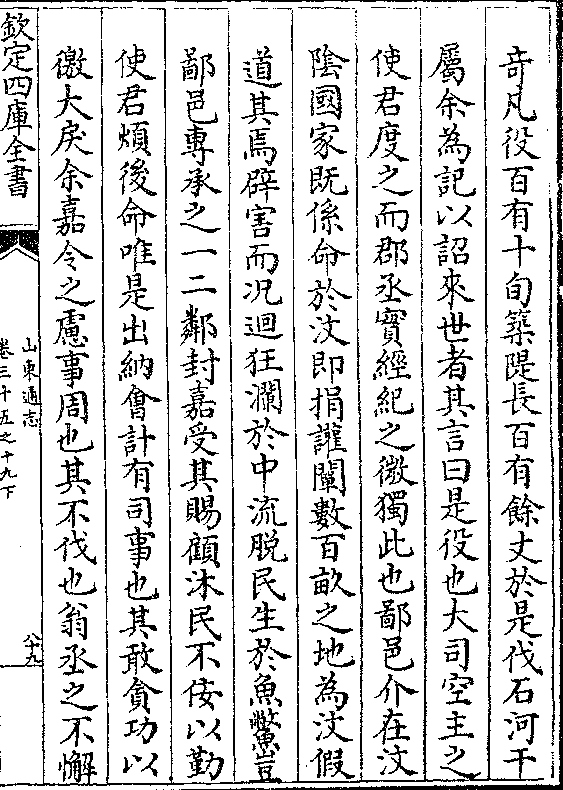 奇凡役百有十旬築隄長百有餘丈於是伐石河干
屬余為記以詔來世者其言曰是役也大司空主之
使君度之而郡丞實經紀之微獨此也鄙邑介在汶
陰國家既係命於汶即捐讙闡數百畝之地為汶假
道其焉辟害而况迴狂瀾於中流脫民生於魚鱉豈
鄙邑専承之一二鄰封嘉受其賜顧沐民不佞以勤
使君煩後命唯是出納會計有司事也其敢貪功以
徼大戾余嘉令之慮事周也其不伐也翁丞之不懈
欽定四庫全書
山東通志
卷三十五之十九下
八十九